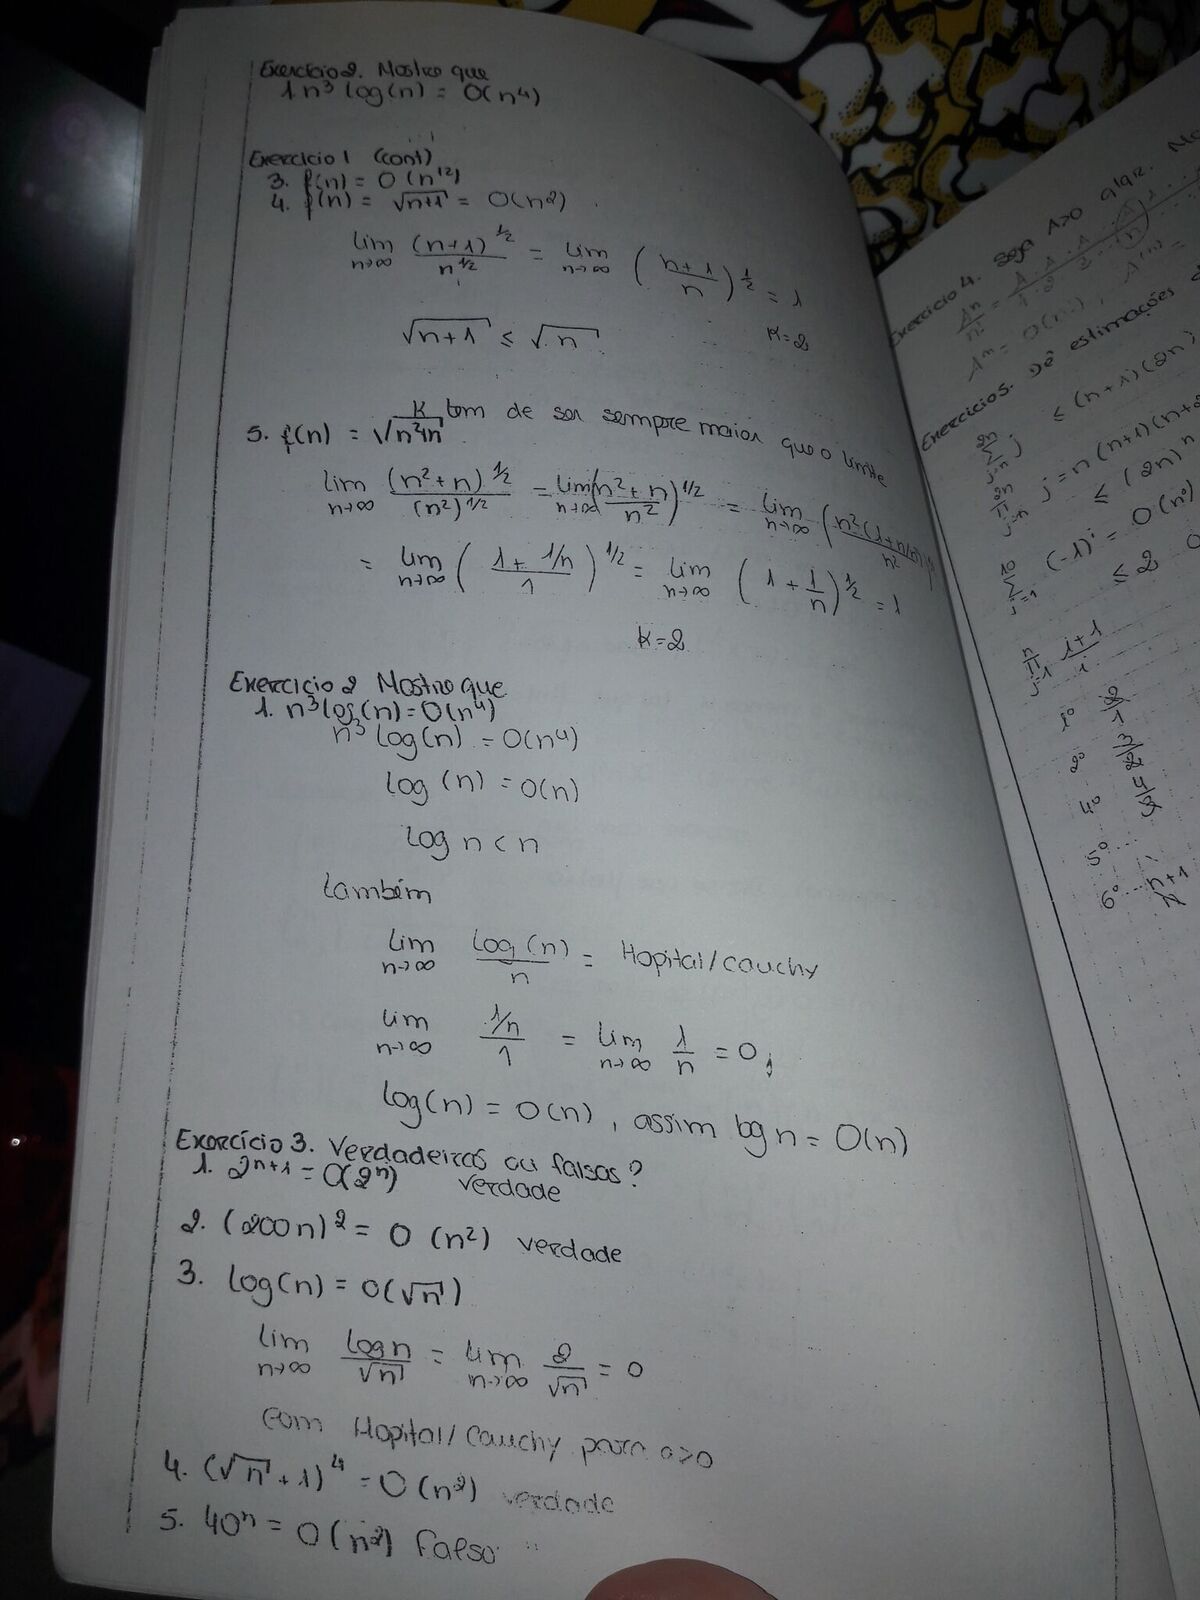 Exercício 2. Mostre que
1 n³ log(n) = O(n⁴)
Exercício 1 (cont)
3. f(n) = O(n¹²)
4. f(n) = √(n+1) = O(n²)
lim n→∞ (n+1)^1/2 / n^1/2 = lim n→∞ ((n+1)/n)^1/2 = 1
√(n+1) ≤ √n K=2
K tem de ser sempre maior que o limite
5. f(n) = √(n²+n)
lim n→∞ (n²+n)^1/2 / (n²)^1/2 = lim n→∞ ((n²+n)/n²)^1/2 = lim n→∞ (n²(1+n/n²)/n²)
= lim n→∞ ((1+1/n)/1)^1/2 = lim n→∞ (1+1/n)^1/2 = 1
K=2
Exercício 2 Mostre que
1. n³log(n)=O(n⁴)
n³ log(n) = O(n⁴)
log (n) = O(n)
log n < n
também
lim n→∞ log(n)/n = Hopital/cauchy
lim n→∞ (1/n)/1 = lim n→∞ 1/n = 0,
log(n) = O(n), assim log n = O(n)
Exercício 3. Verdadeiras ou falsas?
1. 2ⁿ⁺¹ = O(2ⁿ) verdade
2. (200n)² = O (n²) verdade
3. log(n) = O(√n)
lim n→∞ log n/√n = lim n→∞ 2/√n = 0
com Hopital/Cauchy para a>0
4. (√n + 1)⁴ = O(n²) verdade
5. 40ⁿ = O(n²) falso
Exercício 4. Seja λ>0 qlqr.
Exercício 5. Dê estimações
≤ (n+1)(2n)
≤ (2n)ⁿ
(-1)ʲ = O(n⁰)
≤ 2
1º
2º
4º
5º
6º